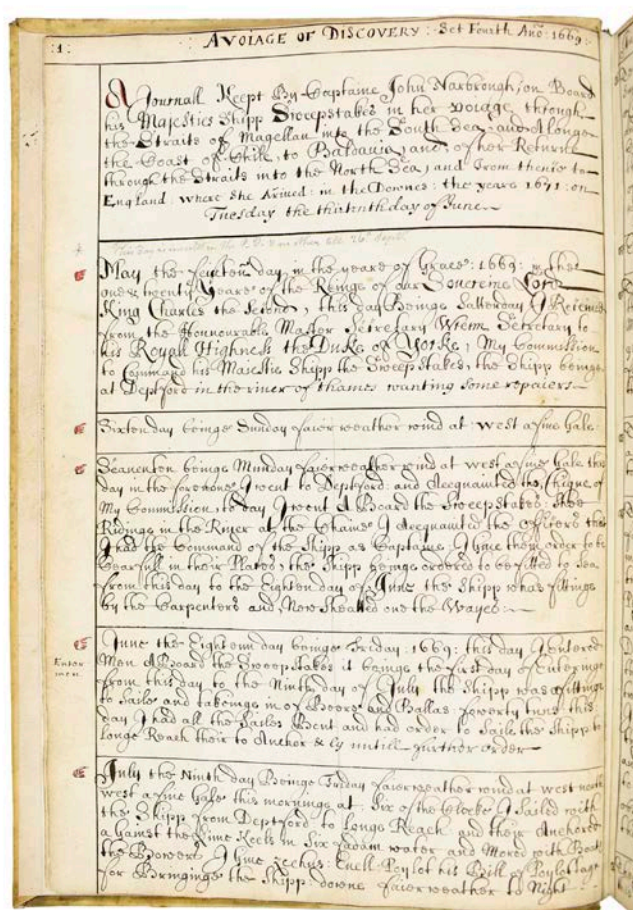 :1:
A VOIAGE OF DISCOVERY : Set Fourth Año : 1669 :
A Journall Keept By Captaine John Narbrough, on Board
his Majesties Shipp Sweepstakes in her voiage through
the Straits of Magellan into the South Sea, and Alonge
the Coast of Chile, to Baldavia, and of her Returne
through the Straits into the North Sea, and from thence to
England, where she Arived: in the Downes: the yeare 1671: on
Tuesday the thirtenth day of June
May the day in the yeare of Grace: 1669: in the
one & twenty Yeare of the Reinge of our Sovereine Lord
King Charles the Second, this day Beinge Satterday I Reeived
from the Honnourable Master Secretary Wrem Secretary to
his Royall Highness the Duke of Yorke, My Commission
to Command his Majestis Shipp the Sweepstakes, the Shipp beinge
at Deptford in the river of thames wanting some repaiers
Sixten day beinge Sunday faier weather wind at west a fine Gale
Seaventen beinge Munday faier weather wind at west a fine Gale this
day in the forenone I went to Deptford: and Acequainted the of
My Commission, to day I went A Board the Sweepstakes: shee
Ridinge in the River at the Chaine I Acequainted the officers that
I had the Command of the Shipp as Captaine, I give them order to be
Carefull in their Places, the Shipp beinge ordered to be fitted to Sea
from this day to the Eighten day of June the Shipp was fittinge
by the Carpenters and New Sheathed one the Wayes
June the Eightenn day beinge Friday: 1669: this day I entered
Enter
men
Men A Board the Sweepstakes it beinge the first day of Enteringe
from this day to the Ninth day of July the Shipp was a fittinge
to Saile and takeinge in of and Ballas: fowerty tunns this
day I had all the Sailes Bent and had order to Saile the Shipp to
Longe Reach their to Anchor & ly untill further order
July the Ninth day Beinge Friday faier weather wind at west north
west a fine Gale this morninge at Six of the Clocke I Sailed with
the Shipp from Deptford to Longe Reach and their Anchored
a Gainst the Lime Keels in Six fadam water and Mored with Both
the Bowers I give Poylot his Bill of Poylottage
for Bringinge the Shipp downe faier weather to Night